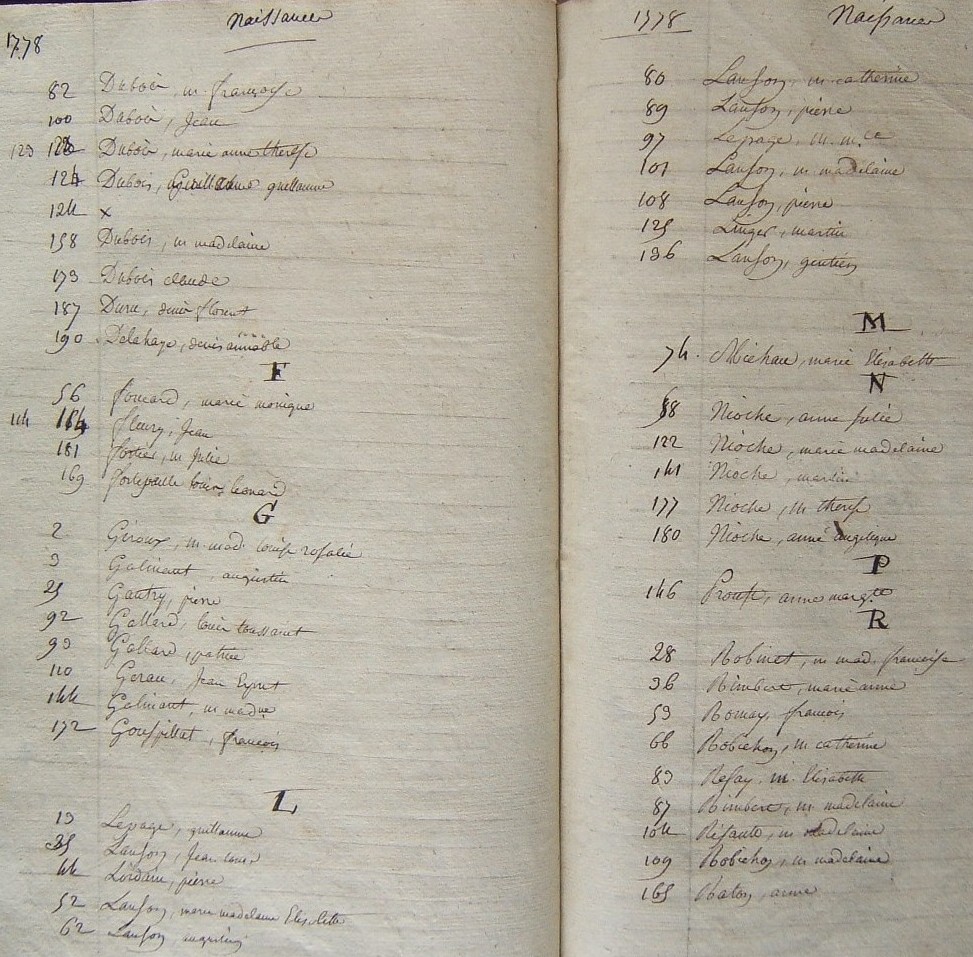 1778
Naissances
82 Dubois, m. françoise
100 Dubois, Jean
123 Dubois, marie anne therese
124 Dubois, guillaume
124 x
158 Dubois, m madelaine
173 Dubois claude
187 Duru, denis florent
190 Delahaye, denis aimable
F
56 foucard, marie monique
114 fleury, Jean
181 fortier, m Julie
169 louis leonard
G
2 Géroux, m. mad. louise rosalie
3 Galinant, augustin
25 Gautry, pierre
92 Gallard, louis toussaint
93 Gallard, patrice
110 Gerau, Jean
144 Galinant, m madne
172 Gouffillat, françois
L
13 Lepage, guillaume
35 Lanson, Jean louis
44 Lordain, pierre
52 Lanson, marie madelaine
62 Lanson,
1778 Naissances
80 Lanson, m. catherine
89 Lanson, pierre
97 Lepage, m. m.
101 Lanson, m. madelaine
108 Lanson, pierre
125 Linger, martin
136 Lanson, gentien
M
74 Michau, marie Elisabeth
N
88 Nioche, anne Julie
122 Nioche, marie madelaine
141 Nioche, martin
177 Nioche, m therese
180 Nioche, anne angelique
P
146 Proust, anne margte
R
28 Robinet, m mad. françoise
36 Rimbert, marie anne
53 Romay, francois
66 Robichon, m catherine
83 Resay, m. Elisabeth
87 Rimbert, m. madelaine
104 m madelaine
109 Robichon, m madelaine
165 Raton, anne